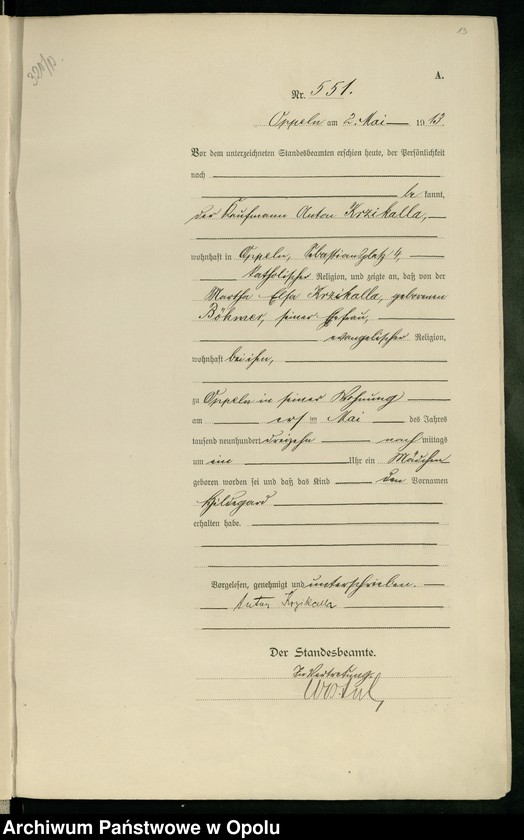 13
A.
Nr. 551.
Oppeln am 2. Mai 1913.
Vor dem unterzeichneten Standesbeamten erschien heute, der Persönlichkeit
nach
bekannt,
der Kaufmann Anton Krzikalla,
wohnhaft in Oppeln, Sebastianplatz 4,
katholischer Religion, und zeigte an, daß von der
Martha Elsa Krzikalla, geborenen
Böhmer, seiner Ehefrau,
evangelischer Religion,
wohnhaft bei ihm,
zu Oppeln in seiner Wohnung
am ersten Mai des Jahres
tausend neunhundert dreizehn nachmittags
um ein Uhr ein Mädchen
geboren worden sei und daß das Kind den Vornamen
Hildegard
erhalten habe.
Vorgelesen, genehmigt und unterschrieben.
Anton Krzikalla
Der Standesbeamte.
In Vertretung.
Archiwum Państwowe w Opolu